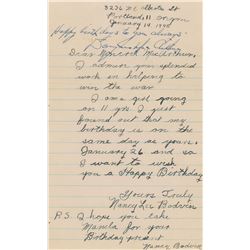 3236 N.E. Alberta St
Portland, 11 Oregon
January 14, 1945
Happy birthdays to you always!
Dear General MacArthur,
I admire your splendid
work in helping to
win the war.
I am a girl going
on 11 yrs. I just
found out that my
birthday is on the
same day as yours,
January 26 and so
I want to wish
you a Happy Birthday
Yours Truly
Nancy Lee
P.S. I hope you take
Manila for your
Birthday present
Nancy